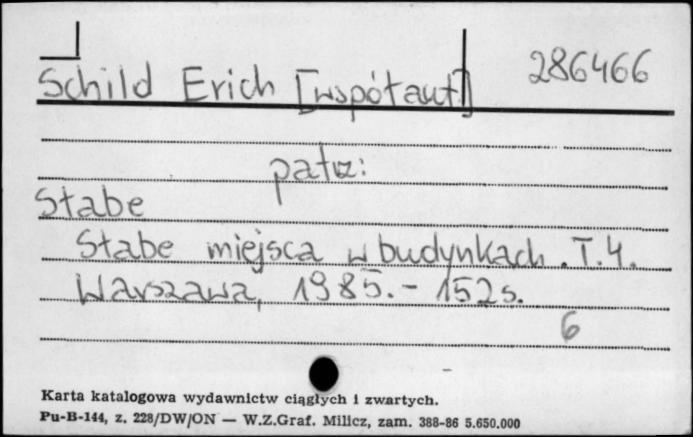 Schild Erich [współaut.] 286466
patrz:
Słabe
Słabe miejsca w budynkach. T.4.
Warszawa, 1985.- 152 s.
6
Karta katalogowa wydawnictw ciągłych i zwartych.
Pu-B-144, z. 228/DW/ON — W.Z.Graf. Milicz, zam. 388-86 5.650.000